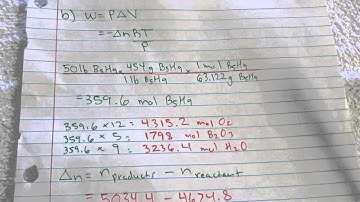 b) W = PΔV
= -ΔnRT
P
50 lb B5H9 × 454 g B5H9 × 1 mol B5H9
1 lb B5H9 63.122 g B5H9
= 359.6 mol B5H9
359.6 × 12 = 4315.2 mol O2
359.6 × 5 = 1798 mol B2O3
359.6 × 9 = 3236.4 mol H2O
Δn = n products - n reactant
= 5034.4 - 4674.8